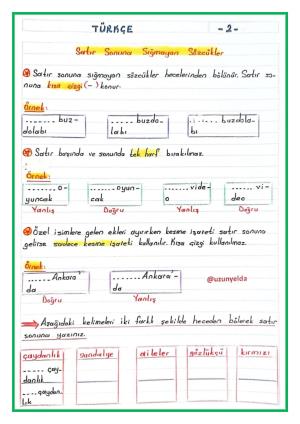 TÜRKÇE
- 2 -
Satır Sonuna Sığmayan Sözcükler
Satır sonuna sığmayan sözcükler hecelerinden bölünür. Satır so-
nuna kısa çizgi (-) konur.
Örnek:
........ buz-
dolabı
....... buzdo-
labı
....... buzdola-
bı
Satır başında ve sonunda tek harf bırakılmaz.
Örnek:
....... o-
yuncak
Yanlış
....... oyun-
cak
Doğru
....... vide-
o
Yanlış
....... vi-
deo
Doğru
Özel isimlere gelen ekleri ayırırken kesme işareti satır sonuna
gelirse sadece kesme işareti kullanılır. Kısa çizgi kullanılmaz.
Örnek:
.....Ankara'
da
Doğru
.....Ankara'-
da
Yanlış
@uzunyelda
Aşağıdaki kelimeleri iki farklı şekilde heceden bölerek satır
sonuna yazınız.
çaydanlık
sandalye
aileler
gözlükçü
kırmızı
..... çay-
danlık
.... çaydan-
lık